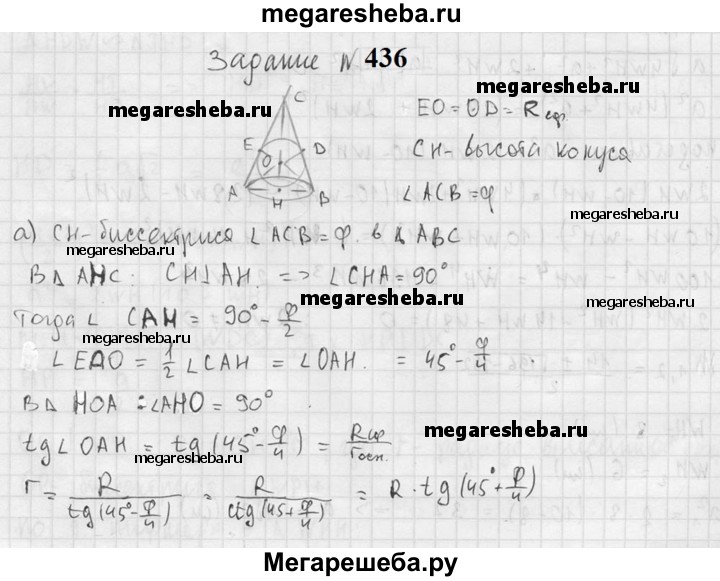 megaresheba.ru
Задание N 436
megaresheba.ru
megaresheba.ru
C
E D
O
A H B
EO = OD = R сф.
CH - высота конуса
∠ACB = φ
megaresheba.ru
а) CH - биссектриса ∠ACB = φ. в Δ ABC
megaresheba.ru
В Δ AHC: CH⊥AH. => ∠CHA = 90°
megaresheba.ru
megaresheba.ru
Тогда ∠ CAH = 90° - φ/2
megaresheba.ru
∠EAO = 1/2 ∠CAH = ∠OAH. = 45° - φ/4.
В Δ HOA: ∠AHO = 90°.
tg∠OAH = tg(45° - φ/4) = Rсф/rосн.
megaresheba.ru
megaresheba.ru
r = R/tg(45° - φ/4) = R/ctg(45 + φ/4) = R · tg(45° + φ/4)
Мегарешеба.ру